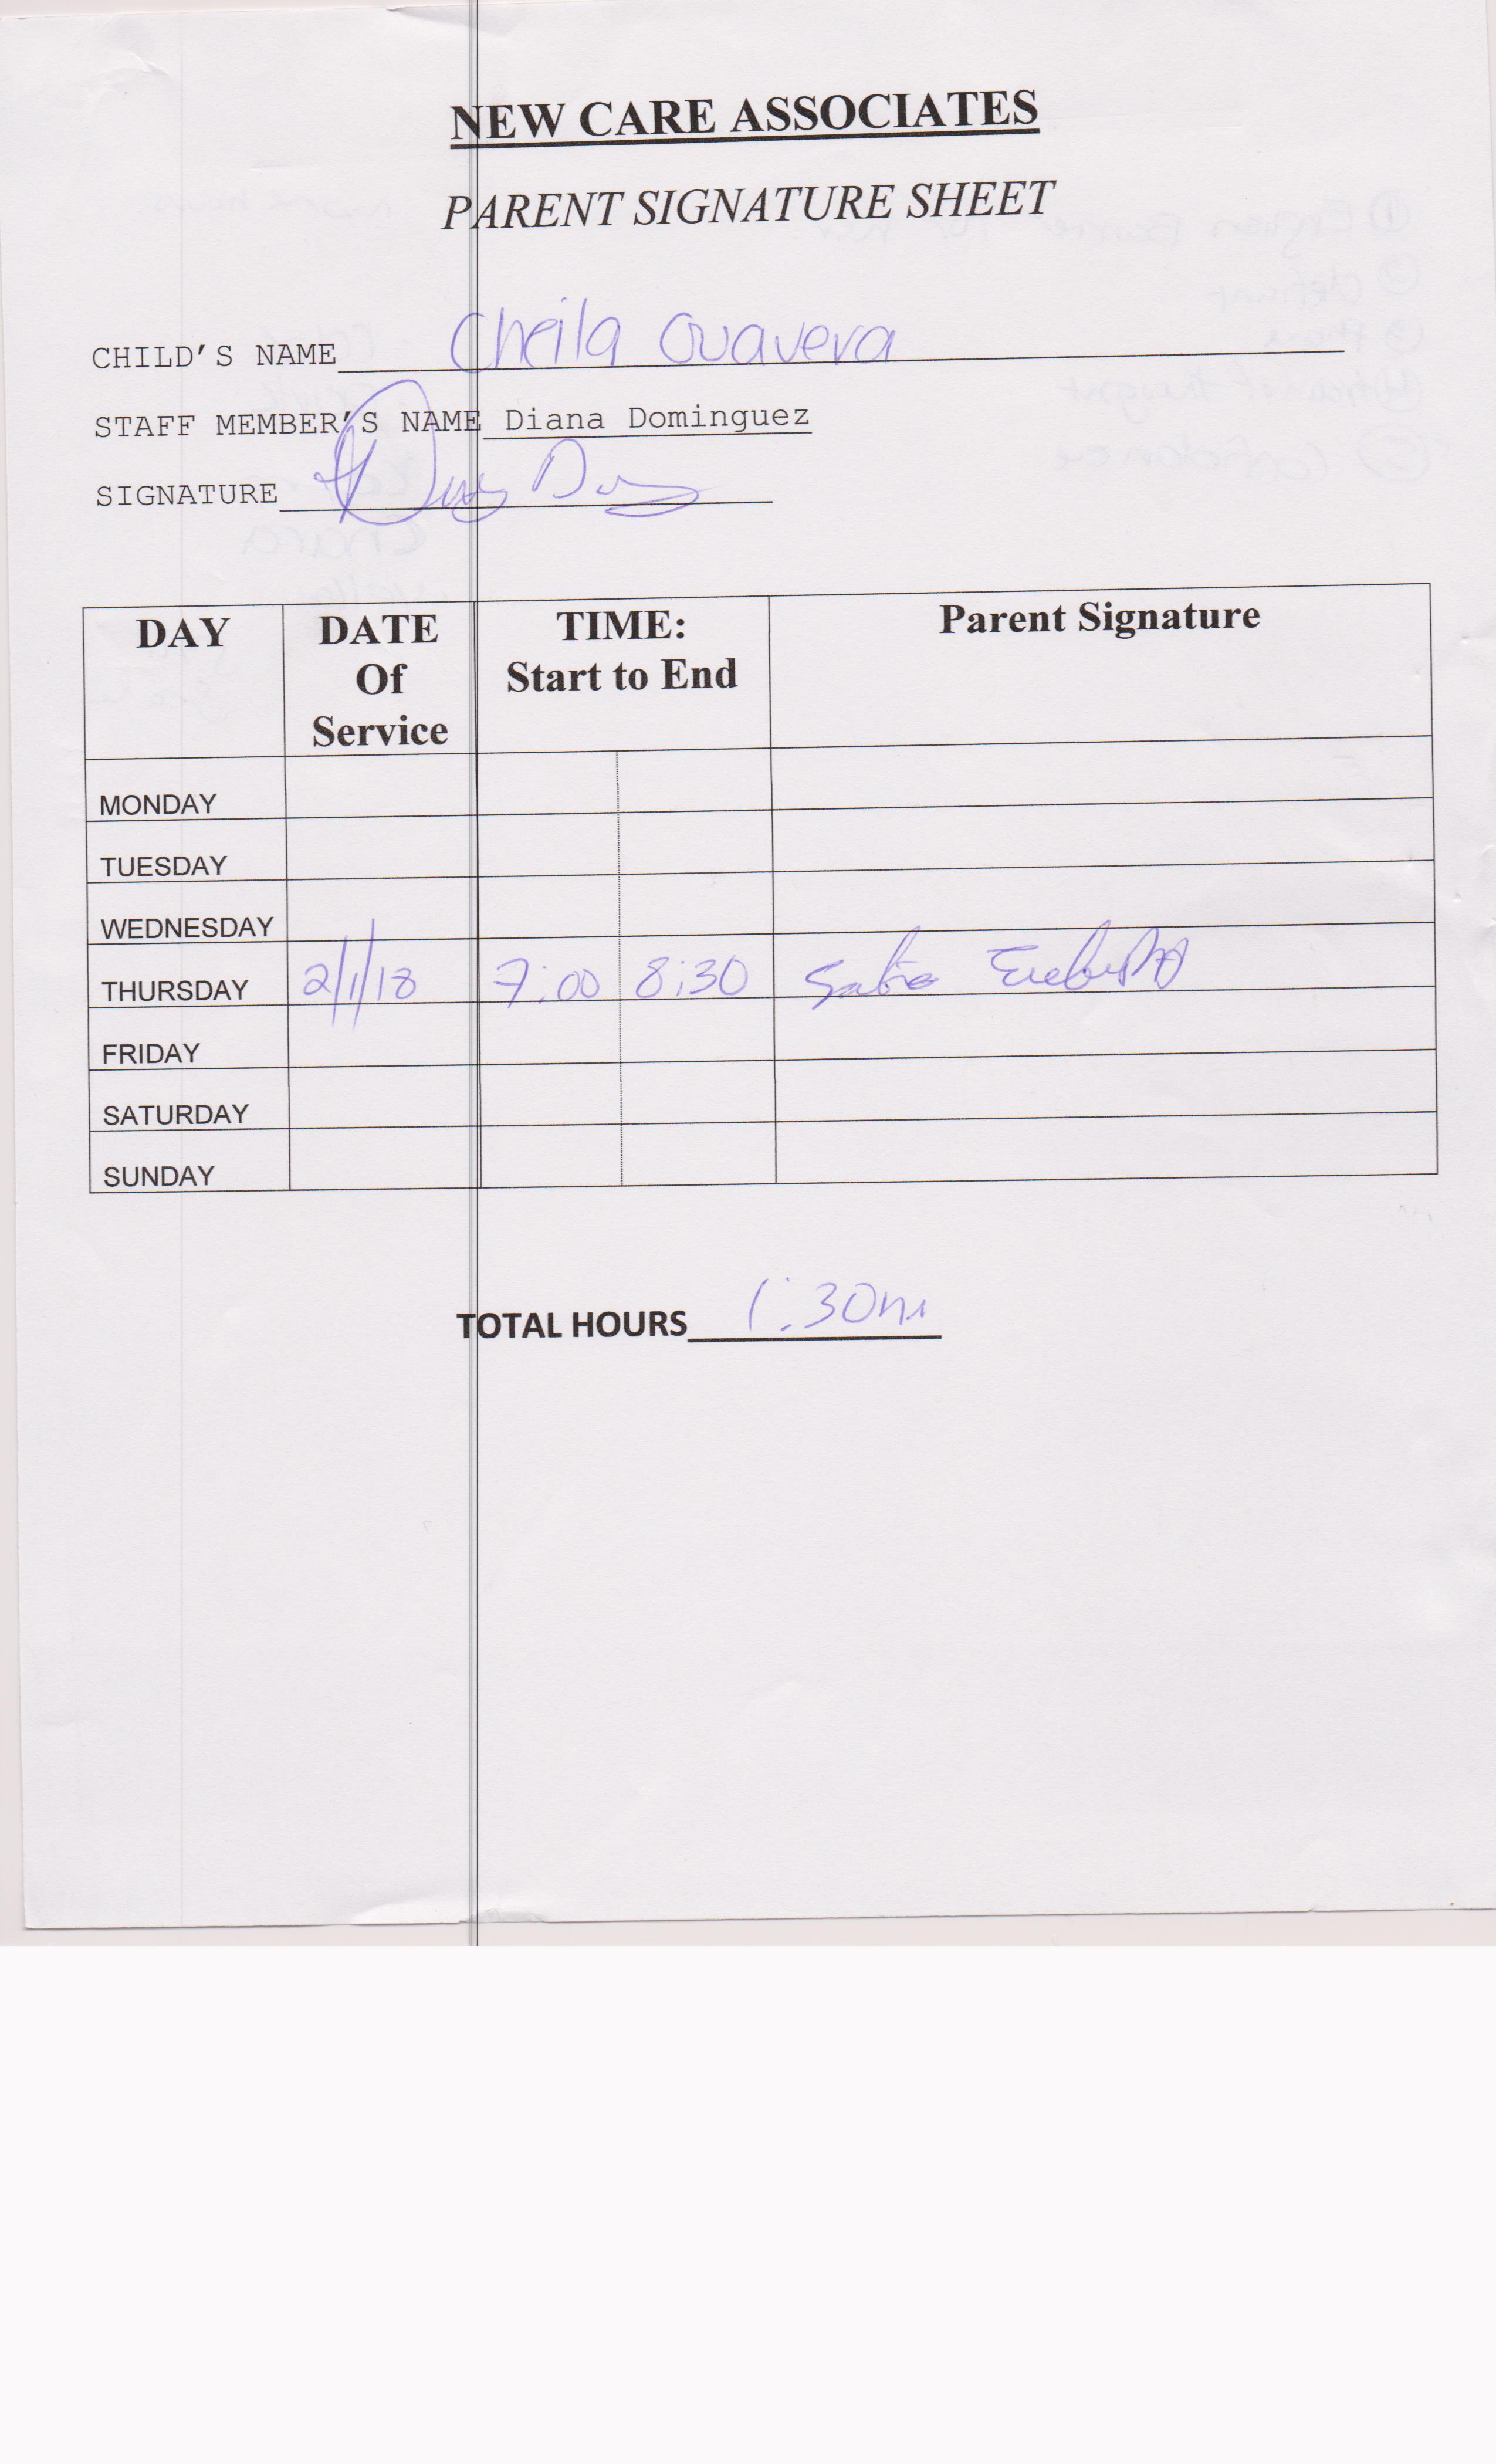 NEW CARE ASSOCIATES
PARENT SIGNATURE SHEET
CHILD'S NAME Cheila Guavera
STAFF MEMBER'S NAME Diana Dominguez
SIGNATURE
DAY DATE Of Service TIME: Start to End Parent Signature
MONDAY
TUESDAY
WEDNESDAY
THURSDAY 2/1/18 7:00 8:30
FRIDAY
SATURDAY
SUNDAY
TOTAL HOURS 1:30